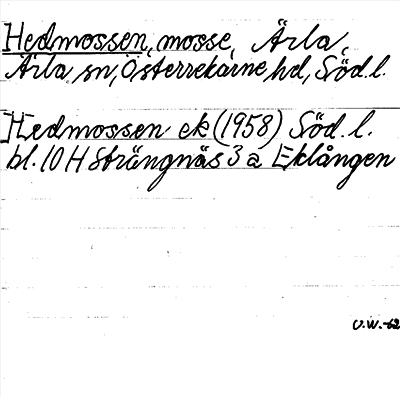 Hedmossen, mosse, Ärla,
Ärla sn, Österrekarne hd, Söd. l.
Hedmossen ek (1958) Söd. l.
bl. 10 H Strängnäs 3 a Eklången
O.W.-62